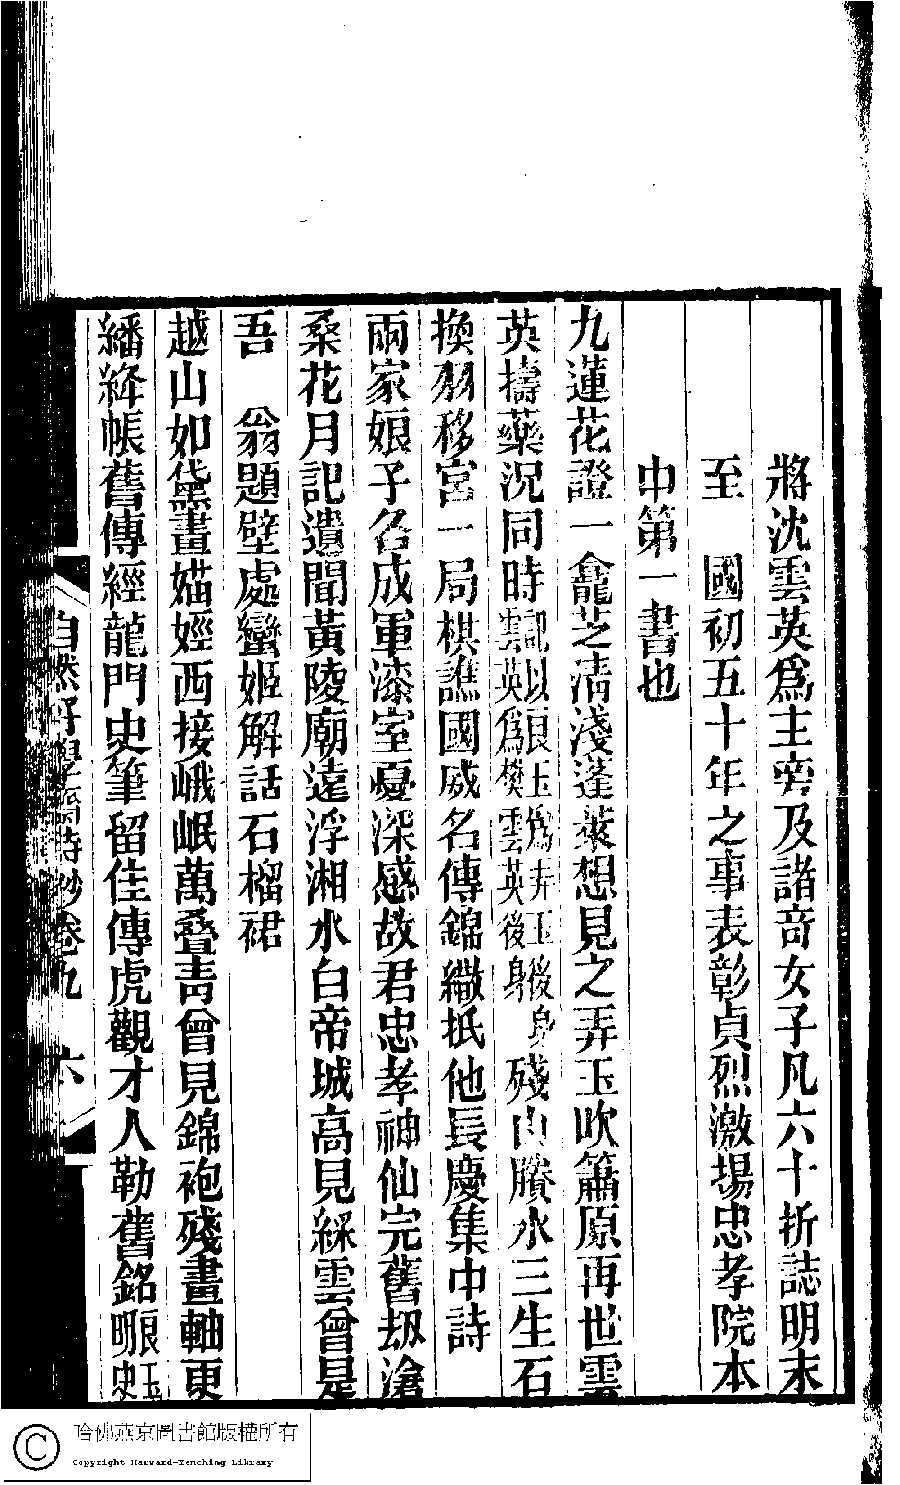 將沈雲英爲主旁及諸奇女子凡六十折誌明末
至 國初五十年之事表彰貞烈激揚忠孝院本
中第一書也
九蓮花證一龕芝清淺蓬萊想見之弄玉吹簫原再世雲
英擣藥況同時記以良玉爲弄玉後身雲英爲樊雲英後身殘山賸水三生石
換羽移宮一局棋譙國威名傳錦繖扺他長慶集中詩
兩家娘子各成軍漆室憂深感故君忠孝神仙完舊刼滄
桑花月記遺聞黃陵廟遠浮湘水白帝城高見綵雲曾是
吾 翁題壁處蠻姬解話石榴裙
越山如黛畫娝娙西接峨岷萬叠靑曾見錦袍殘畫軸更
繙絳帳舊傳經龍門史筆留佳傳虎觀才人勒舊銘良玉明史
自然好學齋詩鈔卷九 六
哈佛燕京圖書館版權所有
Copyright Harvard-Yenching Library